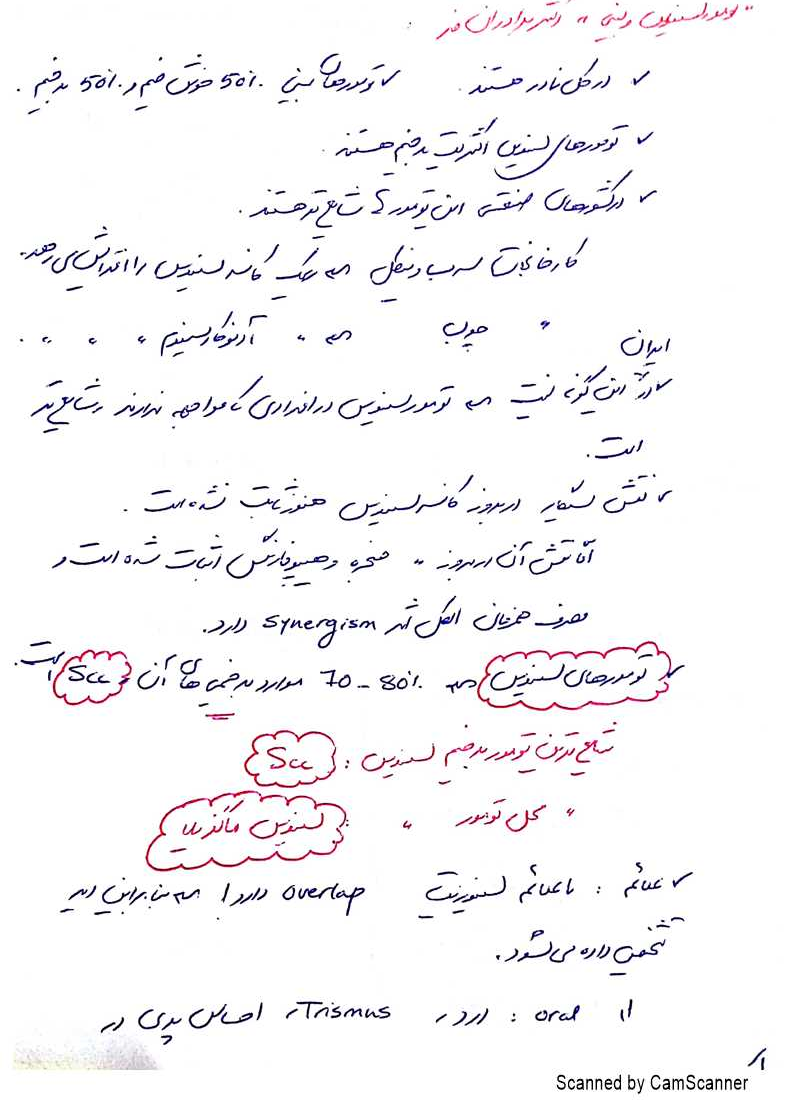 "تومور سینوس و بینی" دکتر برادران فر :
✓ در کل نادر هستند. ✓ تومورهای بینی 50٪ خوش خیم و 50٪ بدخیم.
✓ تومورهای سینوس اکثریت بدخیم هستند.
✓ در کشورهای صنعتی این تومورها شایع تر هستند.
کارخانجات سرب و نیکل ⇐ ریسک کانسر سینوس را افزایش می دهد.
" چوب ⇐ " آدنوکارسینوم " " " .
✓ در ایران این گونه نیست ⇐ تومور سینوس در افرادی که مواجهه ندارند شایع تر
است.
✓ نقش سیگار در بروز کانسر سینوس هنوز ثابت نشده است.
اما نقش آن در بروز " حنجره و هیپوفارنکس اثبات شده است و
مصرف همزمان الکل اثر synergism دارد.
✓ تومورهای سینوس ⇐ 70-80٪ موارد بدخیمی های آن Scc است.
شایع ترین تومور بدخیم سینوس : Scc
" محل تومور " : سینوس ماگزیلا
✓ علائم : با علائم سینوزیت overlap دارد! ⇐ بنابراین دیر
تشخیص داده می شود.
1) oral : درد، Trismus، احساس پری در
1/
Scanned by CamScanner